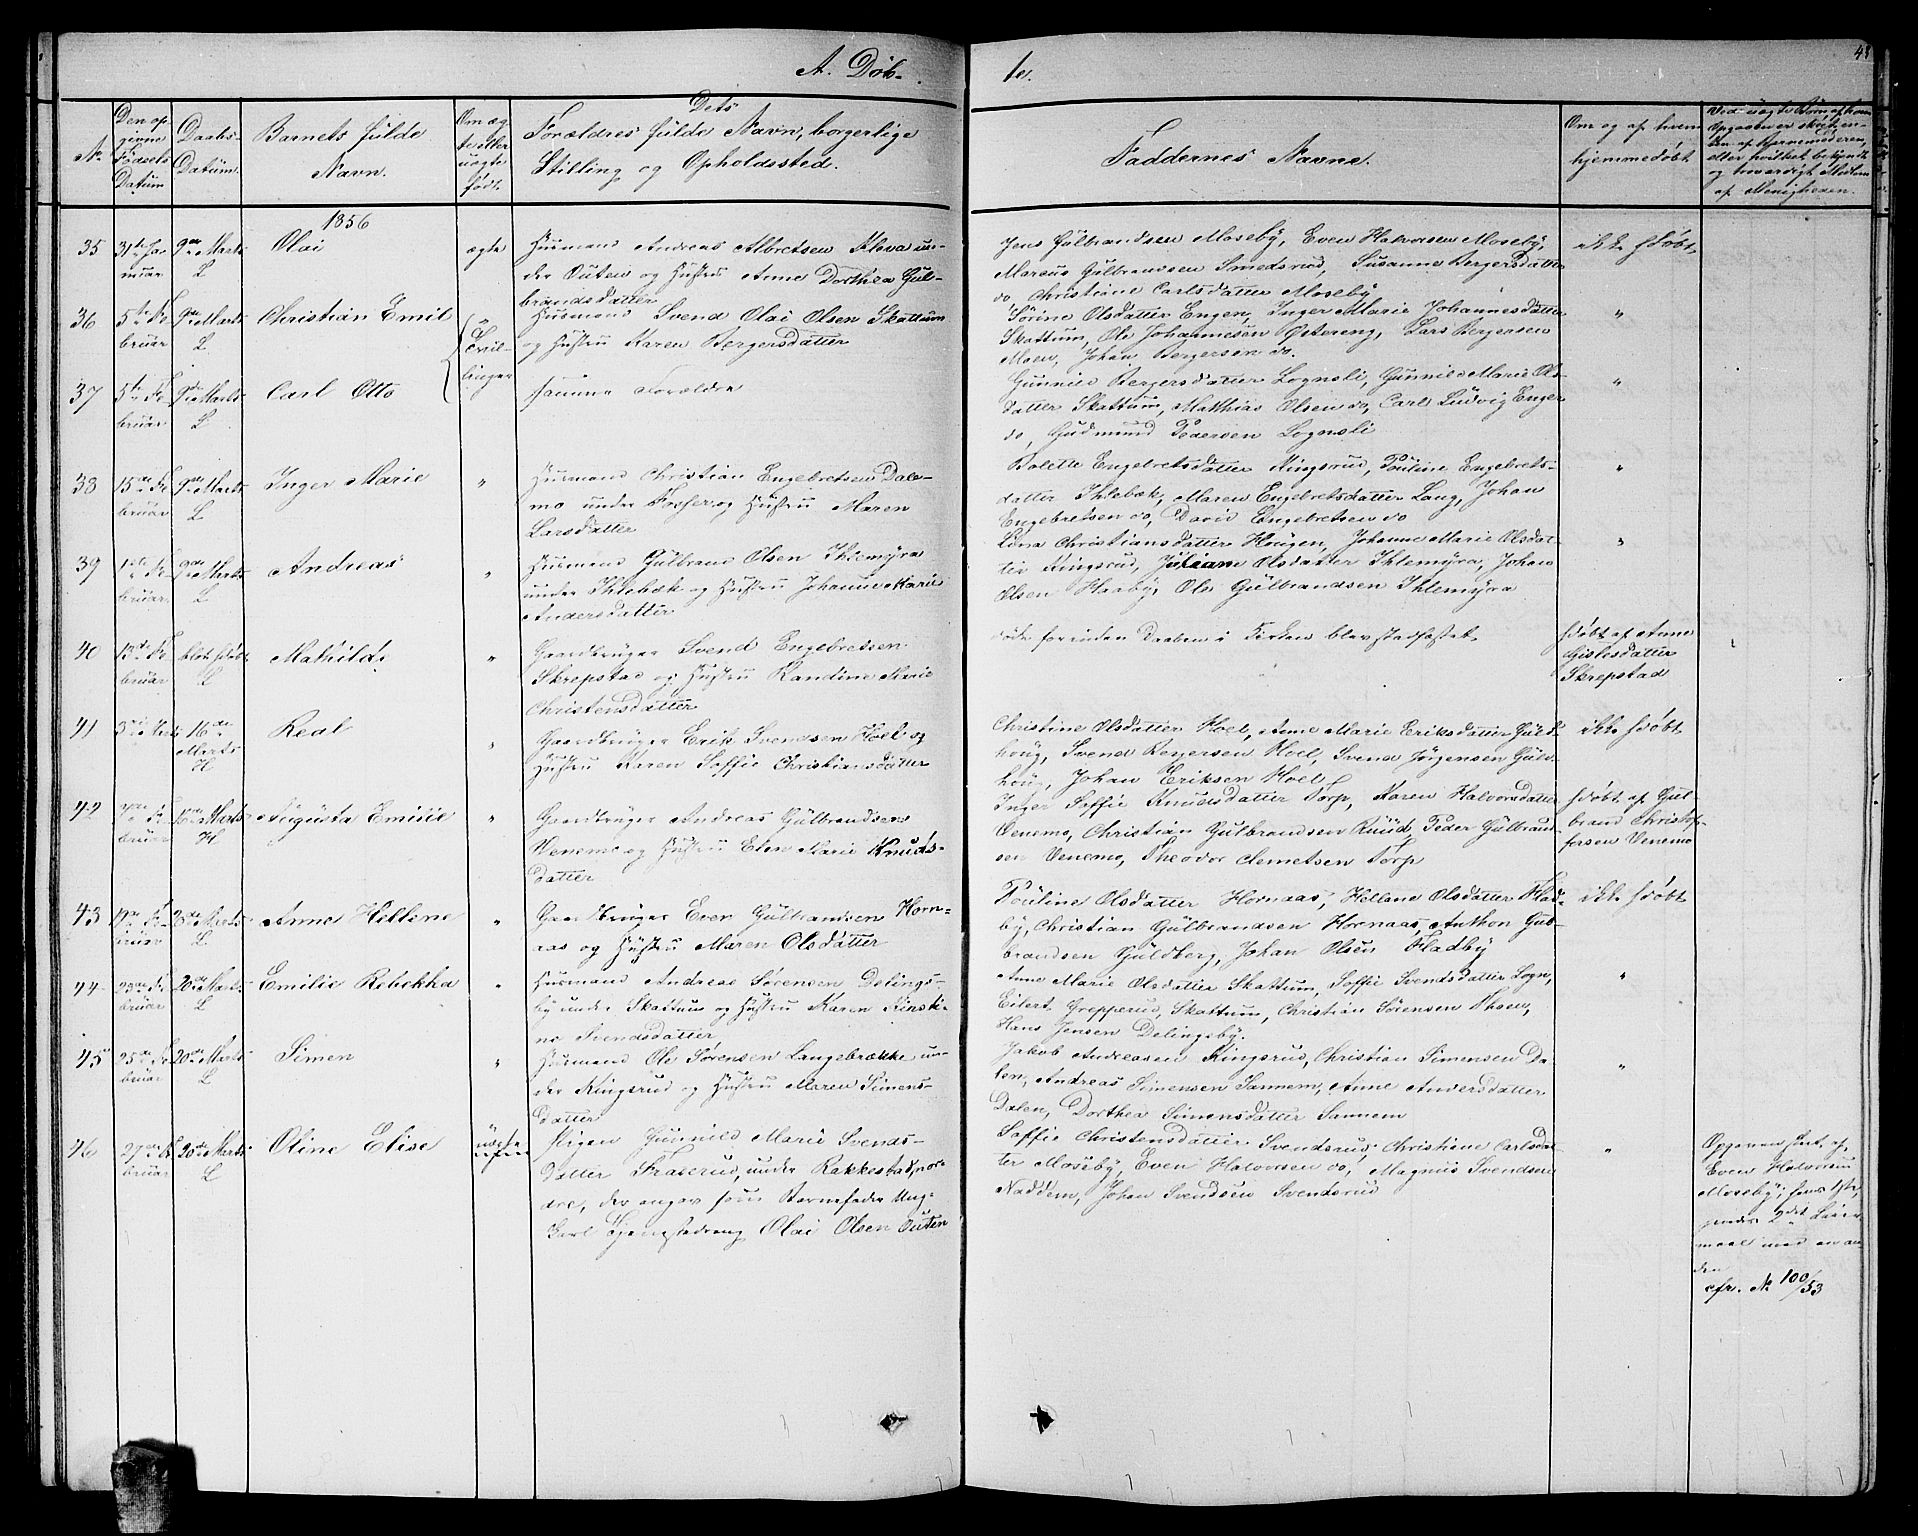 A. Døb-
te.
48
No
Den op-
givne
Fødsels
Datum
Daabs-
Datum.
Barnets fulde
Navn.
Om æg-
te eller
uægte
født.
Dets
Forældres fulde Navn, borgerlige
Stilling og Opholdssted.
Faddernes Navne.
Om og af hvem
hjemmedøbt
af Menigheden.
1856
35 31te Ja- 9de Marts Olai ægte Husmand Andreas Albretsen Kleva un-
nuar L der Outen og Hustru Anne Dorthea Gul-
brandsdatter
Jens Gulbrandsen Moseby, Even Halvorsen Moseby, ikke hdøbt
Marcus Gulbrandsen Smedsrud, Susanne Bergersdatter
do, Christine Carlsdatter Moseby
36 5te Fe- 9de Marts Christian Emil Tvil- Husmand Svend Olai Olsen Skattum
bruar L linger og Hustru Karen Bergersdatter
Sørine Olsdatter Engen, Inger Marie Johannesdatter "
Skattum, Ole Johannesen Østereng, Lars Bergersen
Moen, Johan Bergersen do.
37 5te Fe- 9de Marts Carl Otto samme Forældre
bruar L
Gunnild Bergersdatter Lognsli, Gunnild Marie Ols- "
datter Skattum, Matthias Olsen do, Carl Ludvig Enger
do, Gudmund Pedersen Lognsli
38 15de Fe- 9de Marts Inger Marie " Husmand Christian Engebretsen Dale-
bruar L mo under Fosser og Hustru Maren
Larsdatter
Bolette Engebretsdatter Ringsrud, Pouline Engebrets- "
datter Ihlebæk, Maren Engebretsdatter Lang, Johan
Engebretsen do, David Engebretsen do
39 1ste Fe- 9de Marts Andreas " Husmand Gulbrand Olsen Ihlemyra
bruar L under Ihlebæk og Hustru Johanne Marie
Andersdatter
Lina Christiansdatter Haugen, Johanne Marie Olsdat- "
ter Ringsrud, Juliane Olsdatter Ihlemyra, Johan
Olsen Haaby, Ole Gulbrandsen Ihlemyra
40 13de Fe- blot hdøbt Mathilde " Gaardbruger Svend Engebretsen
bruar L Skrepstad og Hustru Randine Marie
Christensdatter
døde forinden Daaben i Kirken blev stadfæstet hdøbt af Anne
Gislesdatter
Skrepstad
41 16de Real " Gaardbruger Erik Svendsen Hoel og
Marts Hustru Karen Soffie Christiansdatter
H
Christine Olsdatter Hoel, Anne Marie Eriksdatter Guld- ikke hdøbt
houg, Svend Bergersen Hoel, Svend Jørgensen Guld-
houg, Johan Eriksen Hoel
42 Marts Augusta Emilie " Gaardbruger Andreas Gulbrandsen
bruar H Venemo og Hustru Elen Marie Knuds-
datter
Inger Soffie Knudsdatter Torp, Karen Halvorsdatter hdøbt af Gul-
Venemo, Christian Gulbrandsen Ruud, Peder Gulbrand- brand Christof-
sen Venemo, Theodor Clemetsen Torp fersen Venemo
43 Marts Anne Hellene " Gaardbruger Even Gulbrandsen Horn-
L aas og Hustru Maren Olsdatter
Pouline Olsdatter Hornaas, Hellene Olsdatter Flad- ikke hdøbt
by, Christian Gulbrandsen Hornaas, Anthon Gul-
brandsen Guldberg, Johan Olsen Fladby
44 23de Fe- 20de Marts Emilie Rebekka " Husmand Andreas Sørensen Delings-
bruar L by under Skattum og Hustru Karen Kirsti-
ne Svendsdatter
Anne Marie Olsdatter Skattum, Soffie Svendsdatter Logn, "
Eilert Grepperud, Skattum, Christian Sørensen Moen,
Hans Jensen Delingsby.
45 25de Fe- 20de Marts Simen " Husmand Ole Sørensen Langebrække un-
bruar L der Ringsrud og Hustru Maren Simens-
datter
Jakob Andreasen Ringsrud, Christian Simensen Da- "
len, Andreas Simensen Sannem, Anne Andersdatter
Dalen, Dorthea Simensdatter Sannem
46 27de Fe- 20de Marts Oline Elise uægte Pigen Gunnild Marie Svends-
bruar L datter Fraserud, under Rakkestad nor-
dre, der angav som Barnefader Ung-
karl Tjenestedreng Olai Olsen Outen
Soffie Christensdatter Svendsrud, Christine Carlsdat- "
ter Moseby, Even Halvorsen do, Magnus Svendsen
Naddem, Johan Svendsen Svendsrud
Opgaven skrt. af
Even Halvorsen
Moseby, hans 1ste,
hendes 2det Leier-
maal med en an-
den
cfr. No 100/53